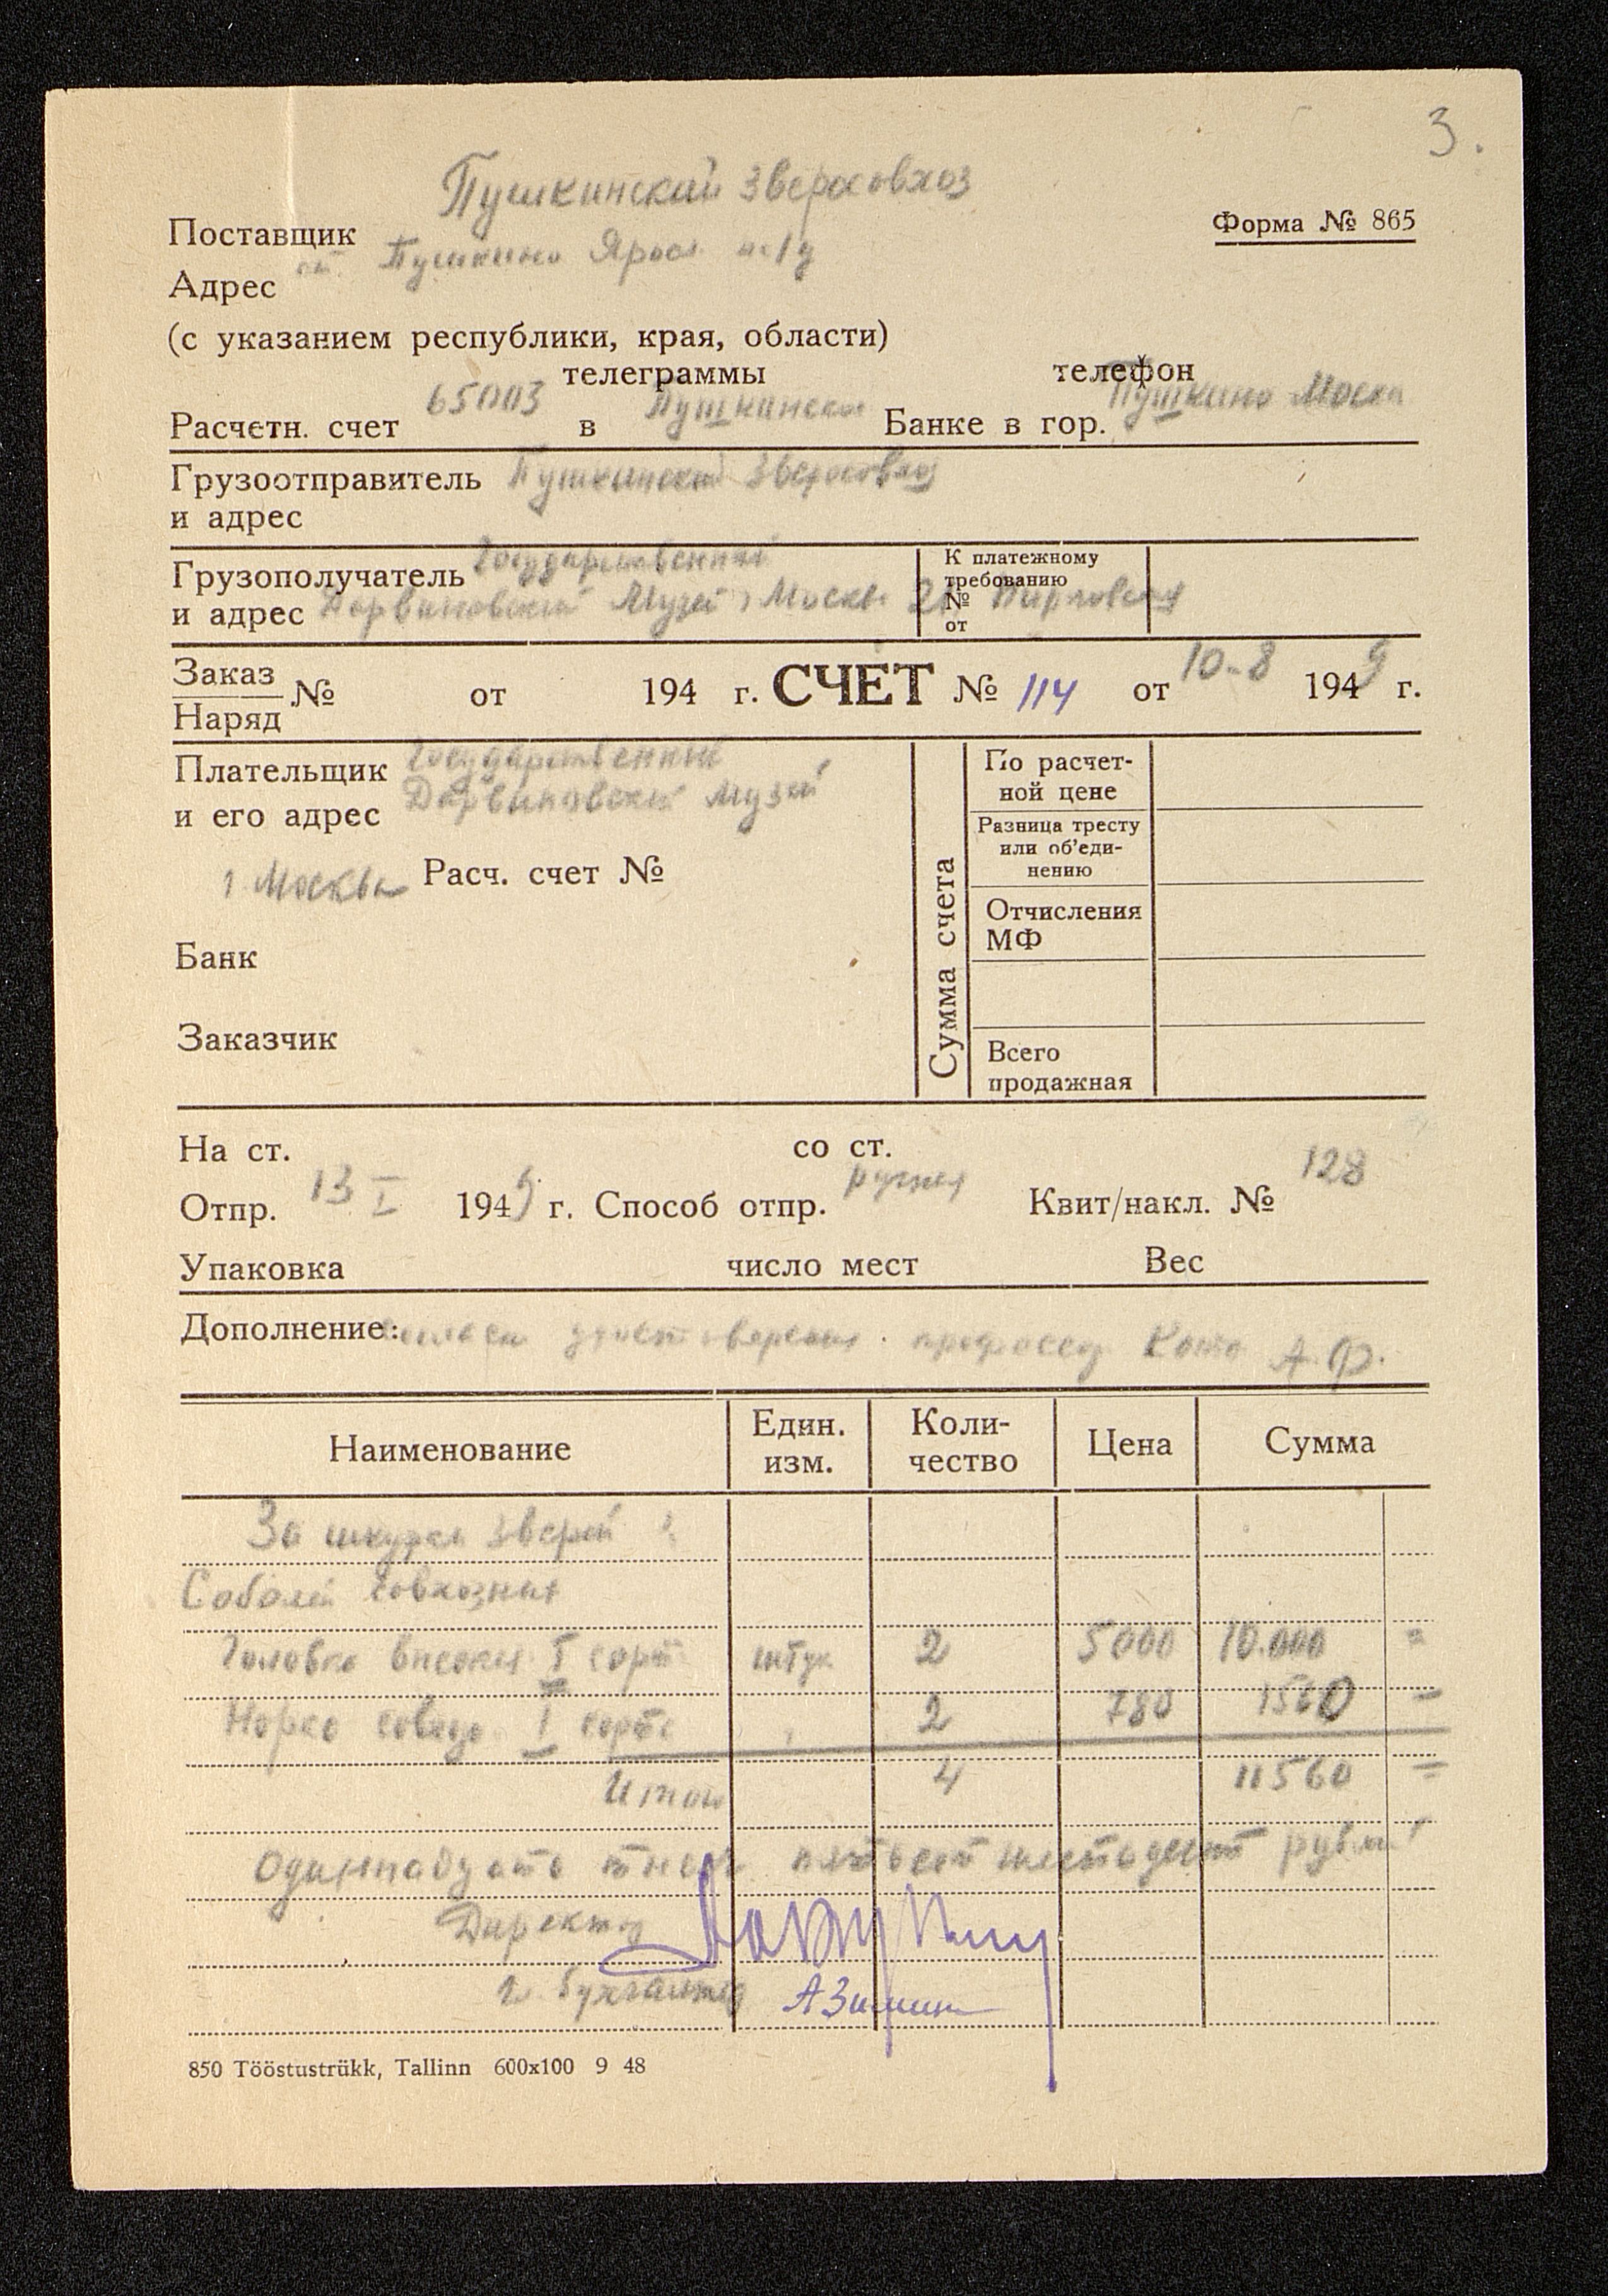 3.
Пушкинский Зверосовхоз
Поставщик
Форма № 865
ст. Пушкино Яросл. ж/д
Адрес
(с указанием республики, края, области)
телеграммы телефон
Расчетн. счет 65003 в Пушкинском Банке в гор. Пушкино Моск
Грузоотправитель Пушкинский Зверосовхоз
и адрес
Грузополучатель Государственный
и адрес Дарвиновский Музей Москва
К платежному
требованию
№
от
Заказ
Наряд
№ от 194 г. СЧЕТ № 114 от 10-8 1949 г.
Плательщик Государственный
и его адрес Дарвиновский музей
г. Москва Расч. счет №
Банк
Заказчик
Сумма счета
По расчет-
ной цене
Разница тресту
или об'еди-
нению
Отчисления
МФ
Всего
продажная
На ст. со ст.
Отпр. 13 I 1949 г. Способ отпр. Квит/накл. № 128
Упаковка число мест Вес
Дополнение: профессор А. Ф.
Наименование Един. изм. Коли-чество Цена Сумма
За шкурки зверей:
Соболей совхозных
Головка высокая I сорт штук 2 5000 10.000 =
Норка I сорта " 2 780 1560 —
Итого 4 11560 =
Одиннадцать тысяч пятьсот шестьдесят рублей
Директор
Гл. бухгалтер АЗимин
850 Tööstustrükk, Tallinn 600x100 9 48